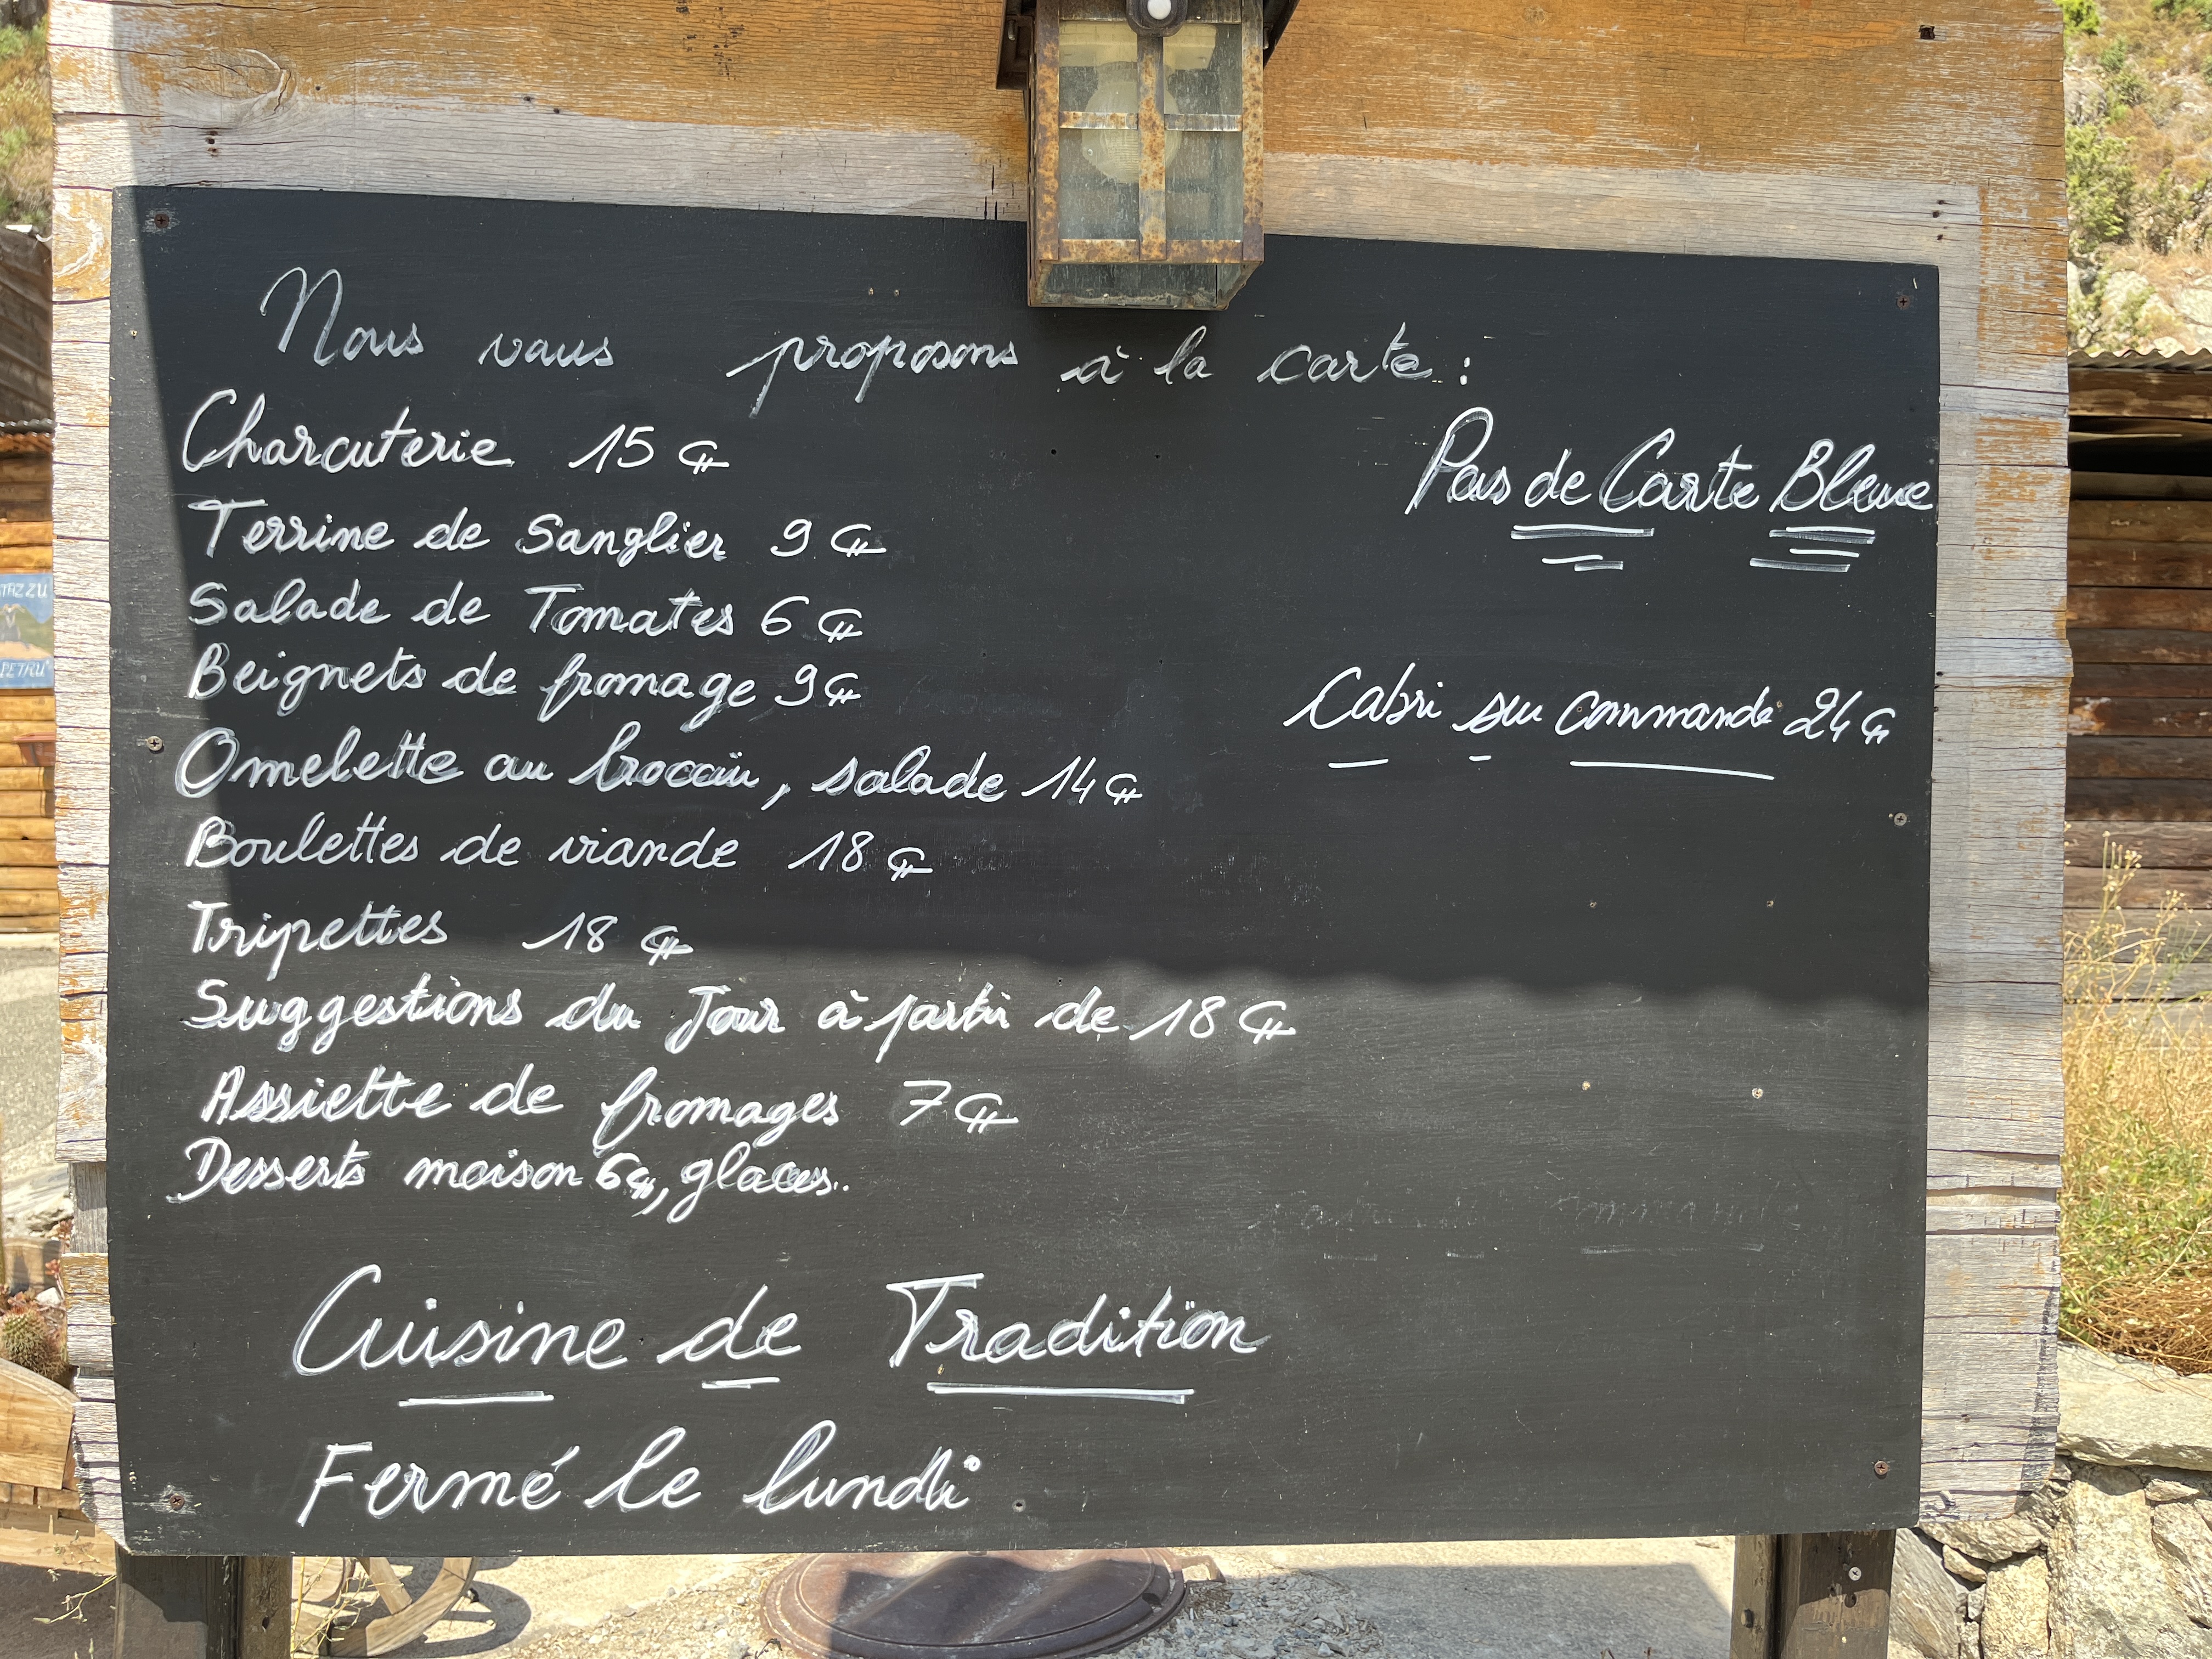 Nous vous proposons à la carte :
Charcuterie 15 €
Pas de Carte Bleue
Terrine de Sanglier 9 €
Salade de Tomates 6 €
Beignets de fromage 9 €
Cabri sur commande 24 €
Omelette au brocciu, salade 14 €
Boulettes de viande 18 €
Tripettes 18 €
Suggestions du Jour à partir de 18 €
Assiette de fromages 7 €
Desserts maison 6 €, glaces.
Cuisine de Tradition
Fermé le lundi